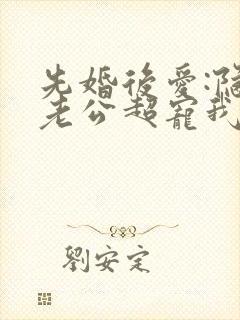 先婚後愛:
老公超寵我
劉安定